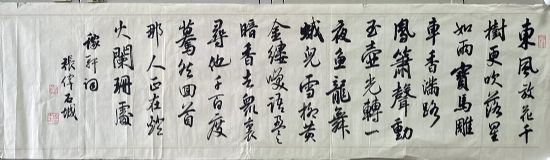 東風放花千
樹更吹落星
如雨寶馬雕
車香滿路
鳳簫聲動
玉壺光轉一
夜魚龍舞
蛾兒雪柳黃
金縷咲語盈々
暗香去衆裏
尋他千百度
驀然回首
那人正在燈
火闌珊處
稼軒詞
張偉石城